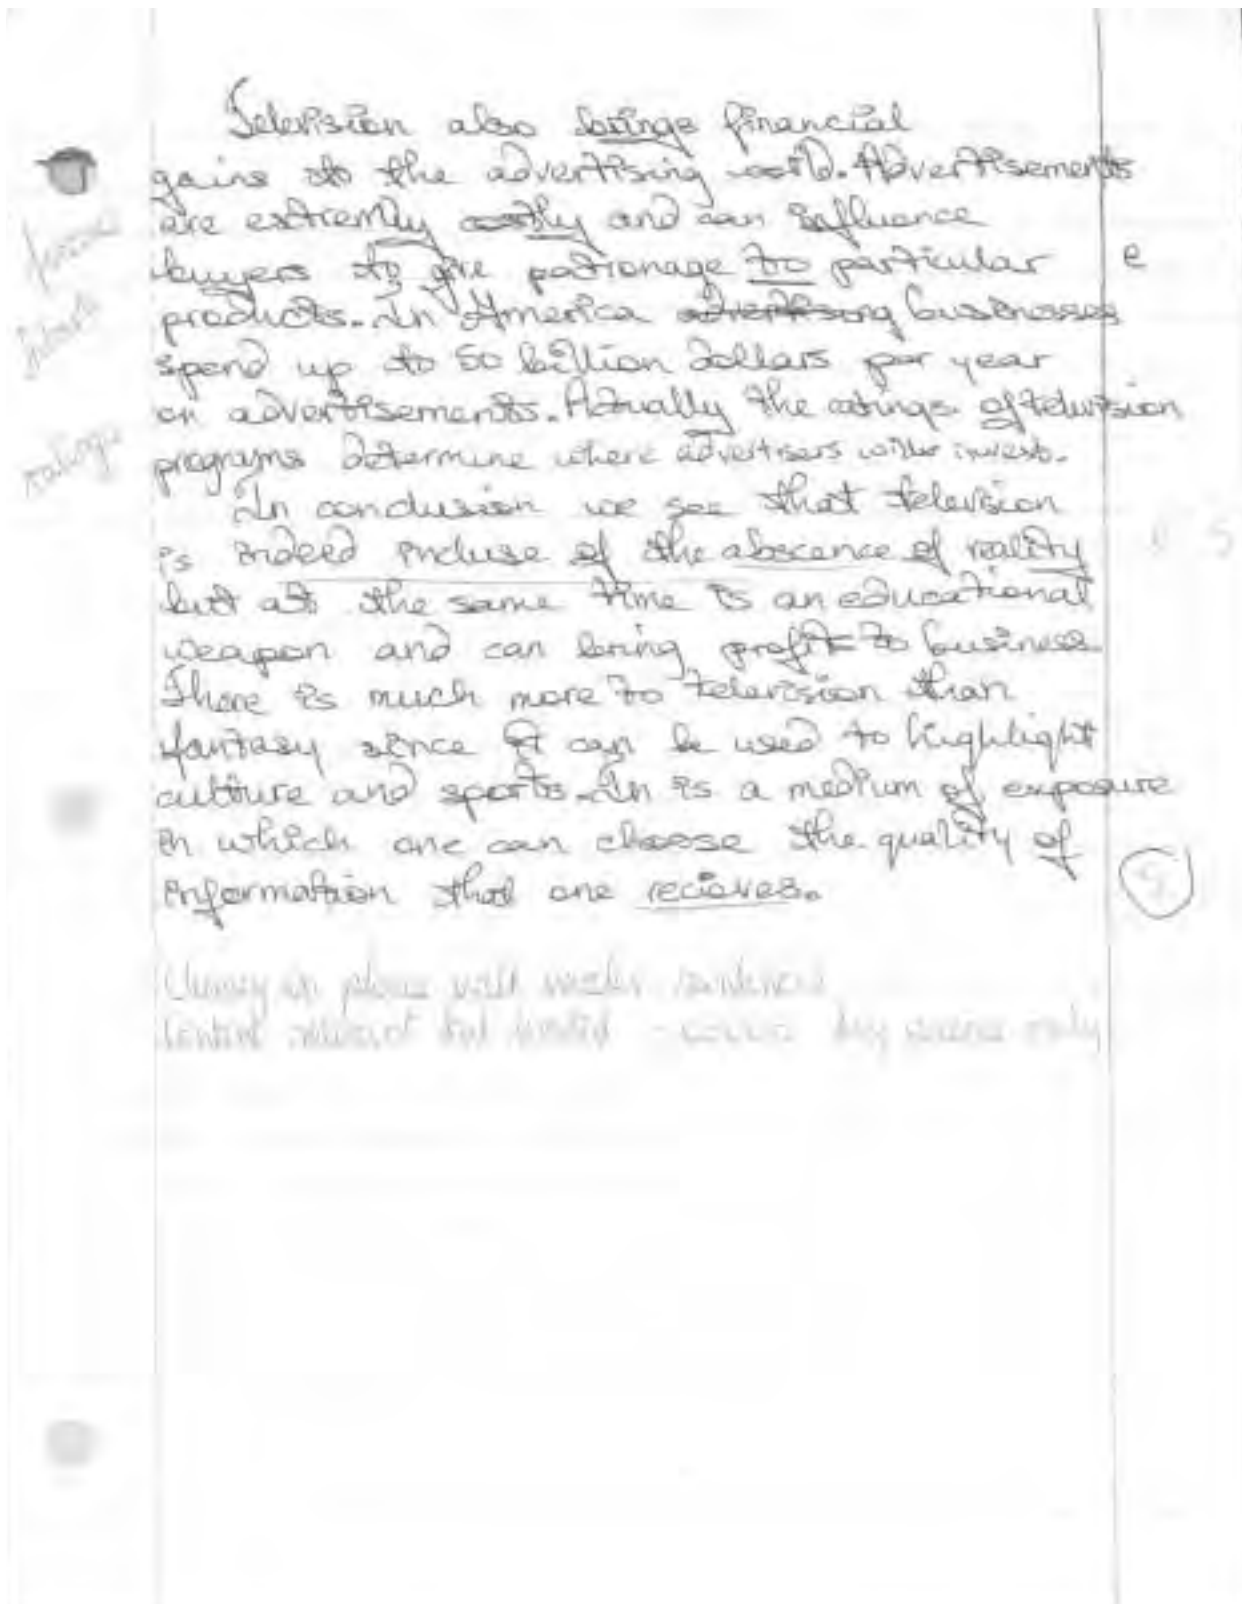 Television also brings financial
gains to the advertising world. Advertisements
are extremly costly and can influence
buyers to give patronage to particular
e
products. In America advertising businesses
spend up to 50 billion dollars per year
on advertisements. Actually the ratings of television
ratings
programs determine where advertisers will invest.
In conclusion we see that television
is indeed incluse of the abscence of reality
but at the same time is an educational
weapon and can bring profit to business.
There is much more to television than
fantasy since it can be used to highlight
culture and sports. In is a medium of exposure
in which one can choose the quality of
information that one recieves.
in place with sentences
Content relevant but limited only